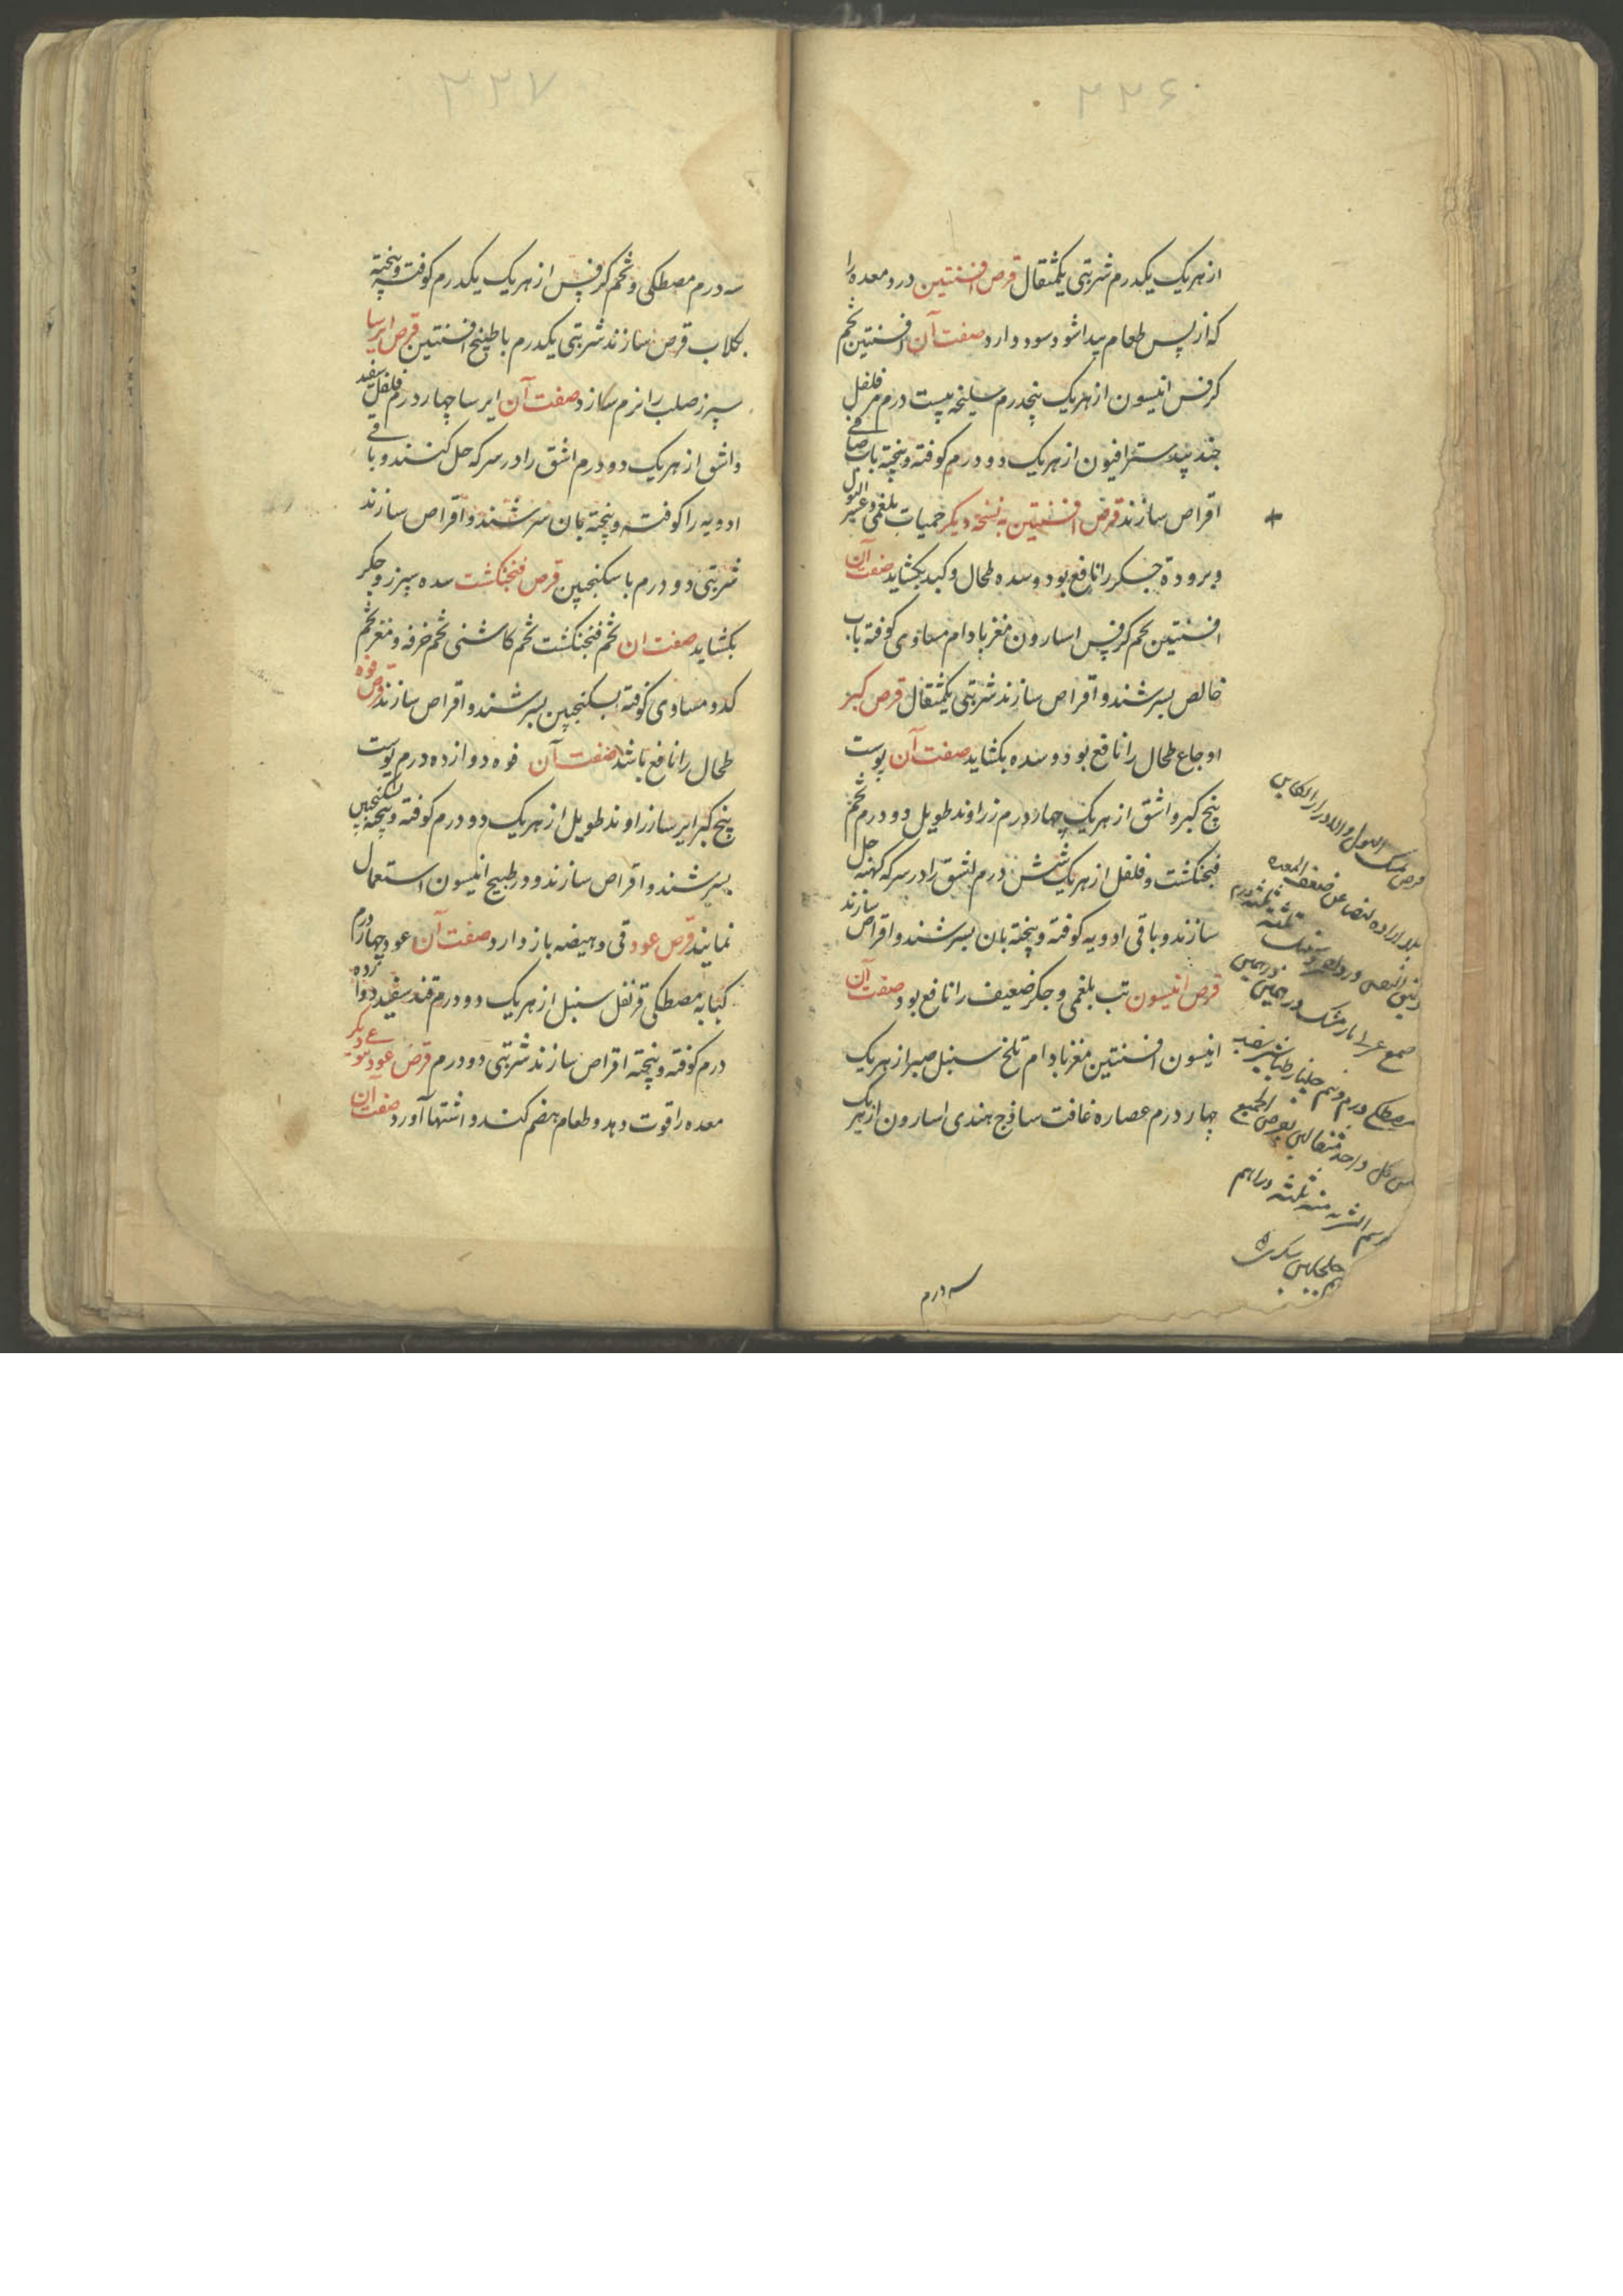 ۲۲۶
از هریک یکدرم شربتی یکمثقال قرص افسنتین درد معده را
که از پس طعام پیدا شود سود دارد صفت آن افسنتین تخم
کرفس انیسون از هریک پنجدرم سلیخه بیست درم مر فلفل
جند بیدستر افیون از هریک دو درم کوفته و بیخته باب صافی
اقراص سازند قرص افسنتین به نسخه دیکر حمیات بلغمی و عسر البول
و برودة جکر را نافع بود و سده طحال و کبد بکشاید صفت آن
افسنتین تخم کرفس اسارون مغز بادام مساوی کوفته باب
خالص بسرشند و اقراص سازند شربتی یکمثقال قرص کبر
اوجاع طحال را نافع بود و سده بکشاید صفت آن پوست
بیخ کبر و اشق از هریک چهار درم زراوند طویل دو درم تخم
فنجنکشت و فلفل از هریک شش درم اشق را در سرکه کهنه حل
سازند و باقی ادویه کوفته و بیخته بان بسرشند و اقراص سازند
قرص انیسون تب بلغمی و جکر ضعیف را نافع بود صفت آن
انیسون افسنتین مغز بادام تلخ سنبل صبر از هریک
چهار درم عصاره غافت ساذج هندی اسارون از هریک
سه درم
قرص
البول
ضعف المعده
صمغ عربی
درهمین
مصطکی درم و نیم جلنار طباشیر سفید
من کل واحد مثقالین یقرص الجمیع
الشربه منه ثلثه دراهم
۲۲۷
سه درم مصطکی و تخم کرفس از هریک یکدرم کوفته و بیخته
بکلاب قرص سازند شربتی یکدرم با طبیخ افسنتین قرص ایرسا
سپرز صلب را نرم سازد صفت آن ایرسا چهار درم فلفل سفید
و اشق از هریک دو درم اشق را در سرکه حل کنند و باقی
ادویه را کوفته و بیخته بان سرشند و اقراص سازند
شربتی دو درم با سکنجبین قرص فنجنکشت سده سپرز و جکر
بکشاید صفت ان تخم فنجنکشت تخم کاشنی تخم خرفه و مغز تخم
کدو مساوی کوفته بسکنجبین بسرشند و اقراص سازند قرص فوه
طحال را نافع باشد صفت آن فوه دوازده درم پوست
بیخ کبر ایرسا زراوند طویل از هریک دو درم کوفته و بیخته بسکنجبین
بسرشند و اقراص سازند و در طبیخ انیسون استعمال
نمایند قرص عود قی و هیضه باز دارد صفت آن عود چهار درم
کبابه مصطکی قرنفل سنبل از هریک دو درم قند سفید دوازده
درم کوفته و بیخته اقراص سازند شربتی دو درم قرص عود نوعی دیکر
معده را قوت دهد و طعام هضم کند و اشتها آورد صفت آن